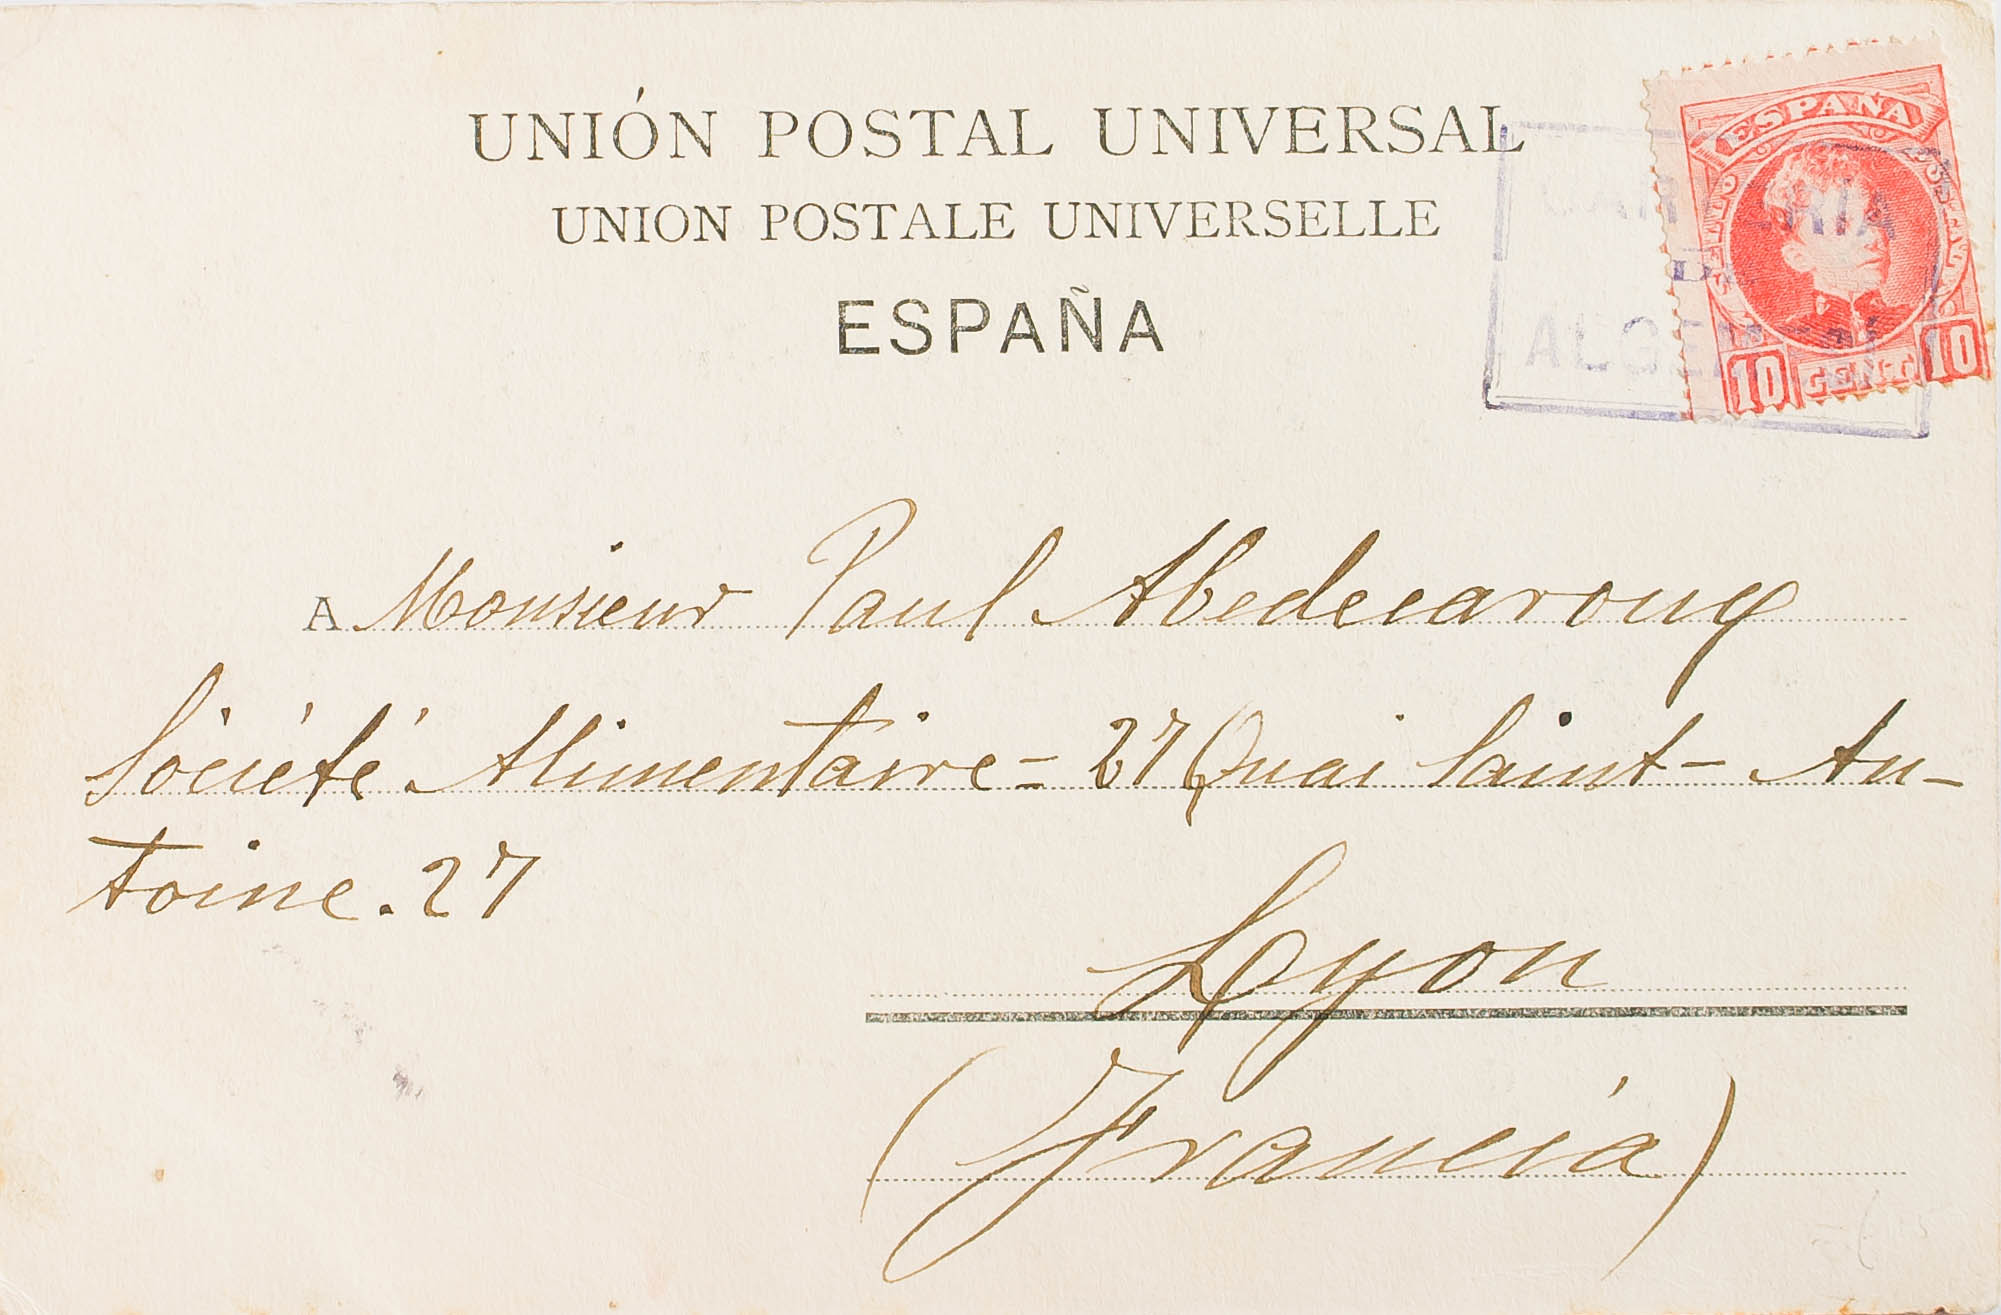 UNIÓN POSTAL UNIVERSAL
UNION POSTALE UNIVERSELLE
ESPAÑA
ESPAÑA
10 CENT. 10
CARTERIA
DE
ALGE
A Monsieur Paul Abedecarouy
Société Alimentaire - 27 Quai Saint - An-
toine. 27
Lyon
(Francia)